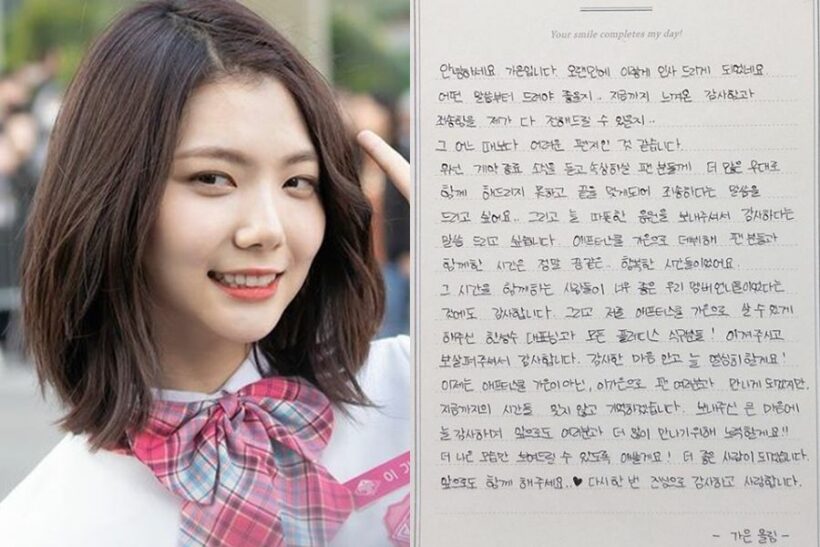 Your smile completes my day!
안녕하세요 가은입니다. 오랜만에 이렇게 인사 드리게 되었네요
어떤 말씀부터 드려야 좋을지.. 지금까지 느껴온 감사함과
죄송함을 제가 다 전해드릴 수 있을지..
그 어느 때보다 어려운 편지인 것 같습니다.
우선 계약 종료 소식을 듣고 속상하실 팬 분들께 더 많은 무대로
함께 해드리지 못하고 끝을 맺게되어 죄송하다는 말씀을
드리고 싶어요.. 그리고 늘 따뜻한 응원을 보내주셔서 감사하다는
말씀 드리고 싶습니다. 애프터스쿨 가은으로 데뷔해 팬 분들과
함께한 시간은 정말 꿈같은.. 행복한 시간들이었어요.
그 시간을 함께하는 사람들이 너무 좋은 우리 멤버언니들이었다는
것에도 감사합니다. 그리고 저를 애프터스쿨 가은으로 살 수 있게
해주신 한성수 대표님과 모든 플레디스 식구분들! 아껴주시고
보살펴주셔서 감사합니다. 감사한 마음 안고 늘 열심히할게요!
이제는 애프터스쿨 가은이 아닌, 이가은으로 팬 여러분과 만나게 되겠지만,
지금까지의 시간을 잊지 않고 기억하겠습니다. 보내주신 큰 마음에
늘 감사하며 앞으로도 여러분과 더 많이 만나기위해 노력할게요!!
더 나은 모습만 보여드릴 수 있도록 애쓸게요! 더 좋은 사람이 되겠습니다.
앞으로도 함께 해주세요..♥ 다시 한 번 진심으로 감사하고 사랑합니다.
- 가은 올림 -
이 가